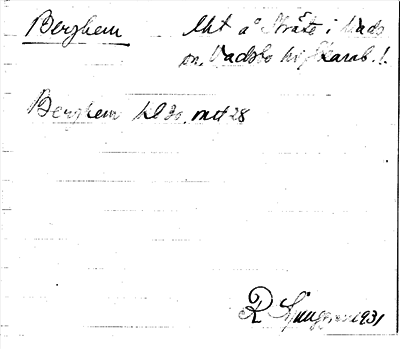 Berghem
Lht å Stråte i Vads
sn. Vadsbo hd. Skarab. l.
Berghem kl 30. mit 28
R Ljunggren 1931